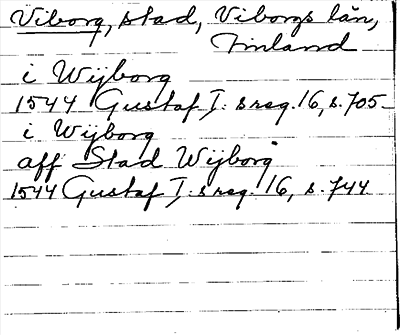 Viborg, stad, Viborgs län,
Finland
i Wijborg
1544 Gustaf I:s reg. 16, s. 705
i Wijborg
aff Stad Wijborg
1544 Gustaf I:s reg. 16, s. 744